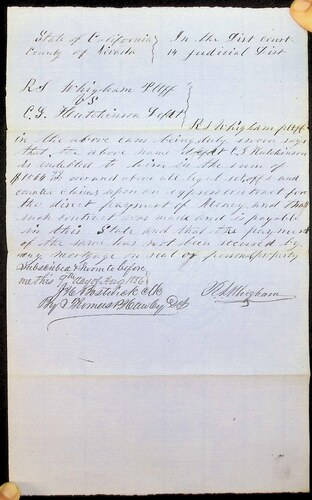 State of California } In the Dist court
County of Nevada } 14 judicial Dist
R S Whigham Plff
VS
C. S. Hutchinson Deft
R S Whigham plaff
in the above case being duly sworn says
that the above named Deft C S Hutchinson
is indebted to him in the sum of
over and above all legal setoffs and
counter claims upon an express contract for
the direct payment of Money, and that
such contract was made and is payable
in this State and that the payment
of the same has not been secured by
any mortgage on real or personal property
Subscribed & Sworn to before
me this day of Aug
R S Whigham
Bostwick Clk
By Thomas P Hawley Dep